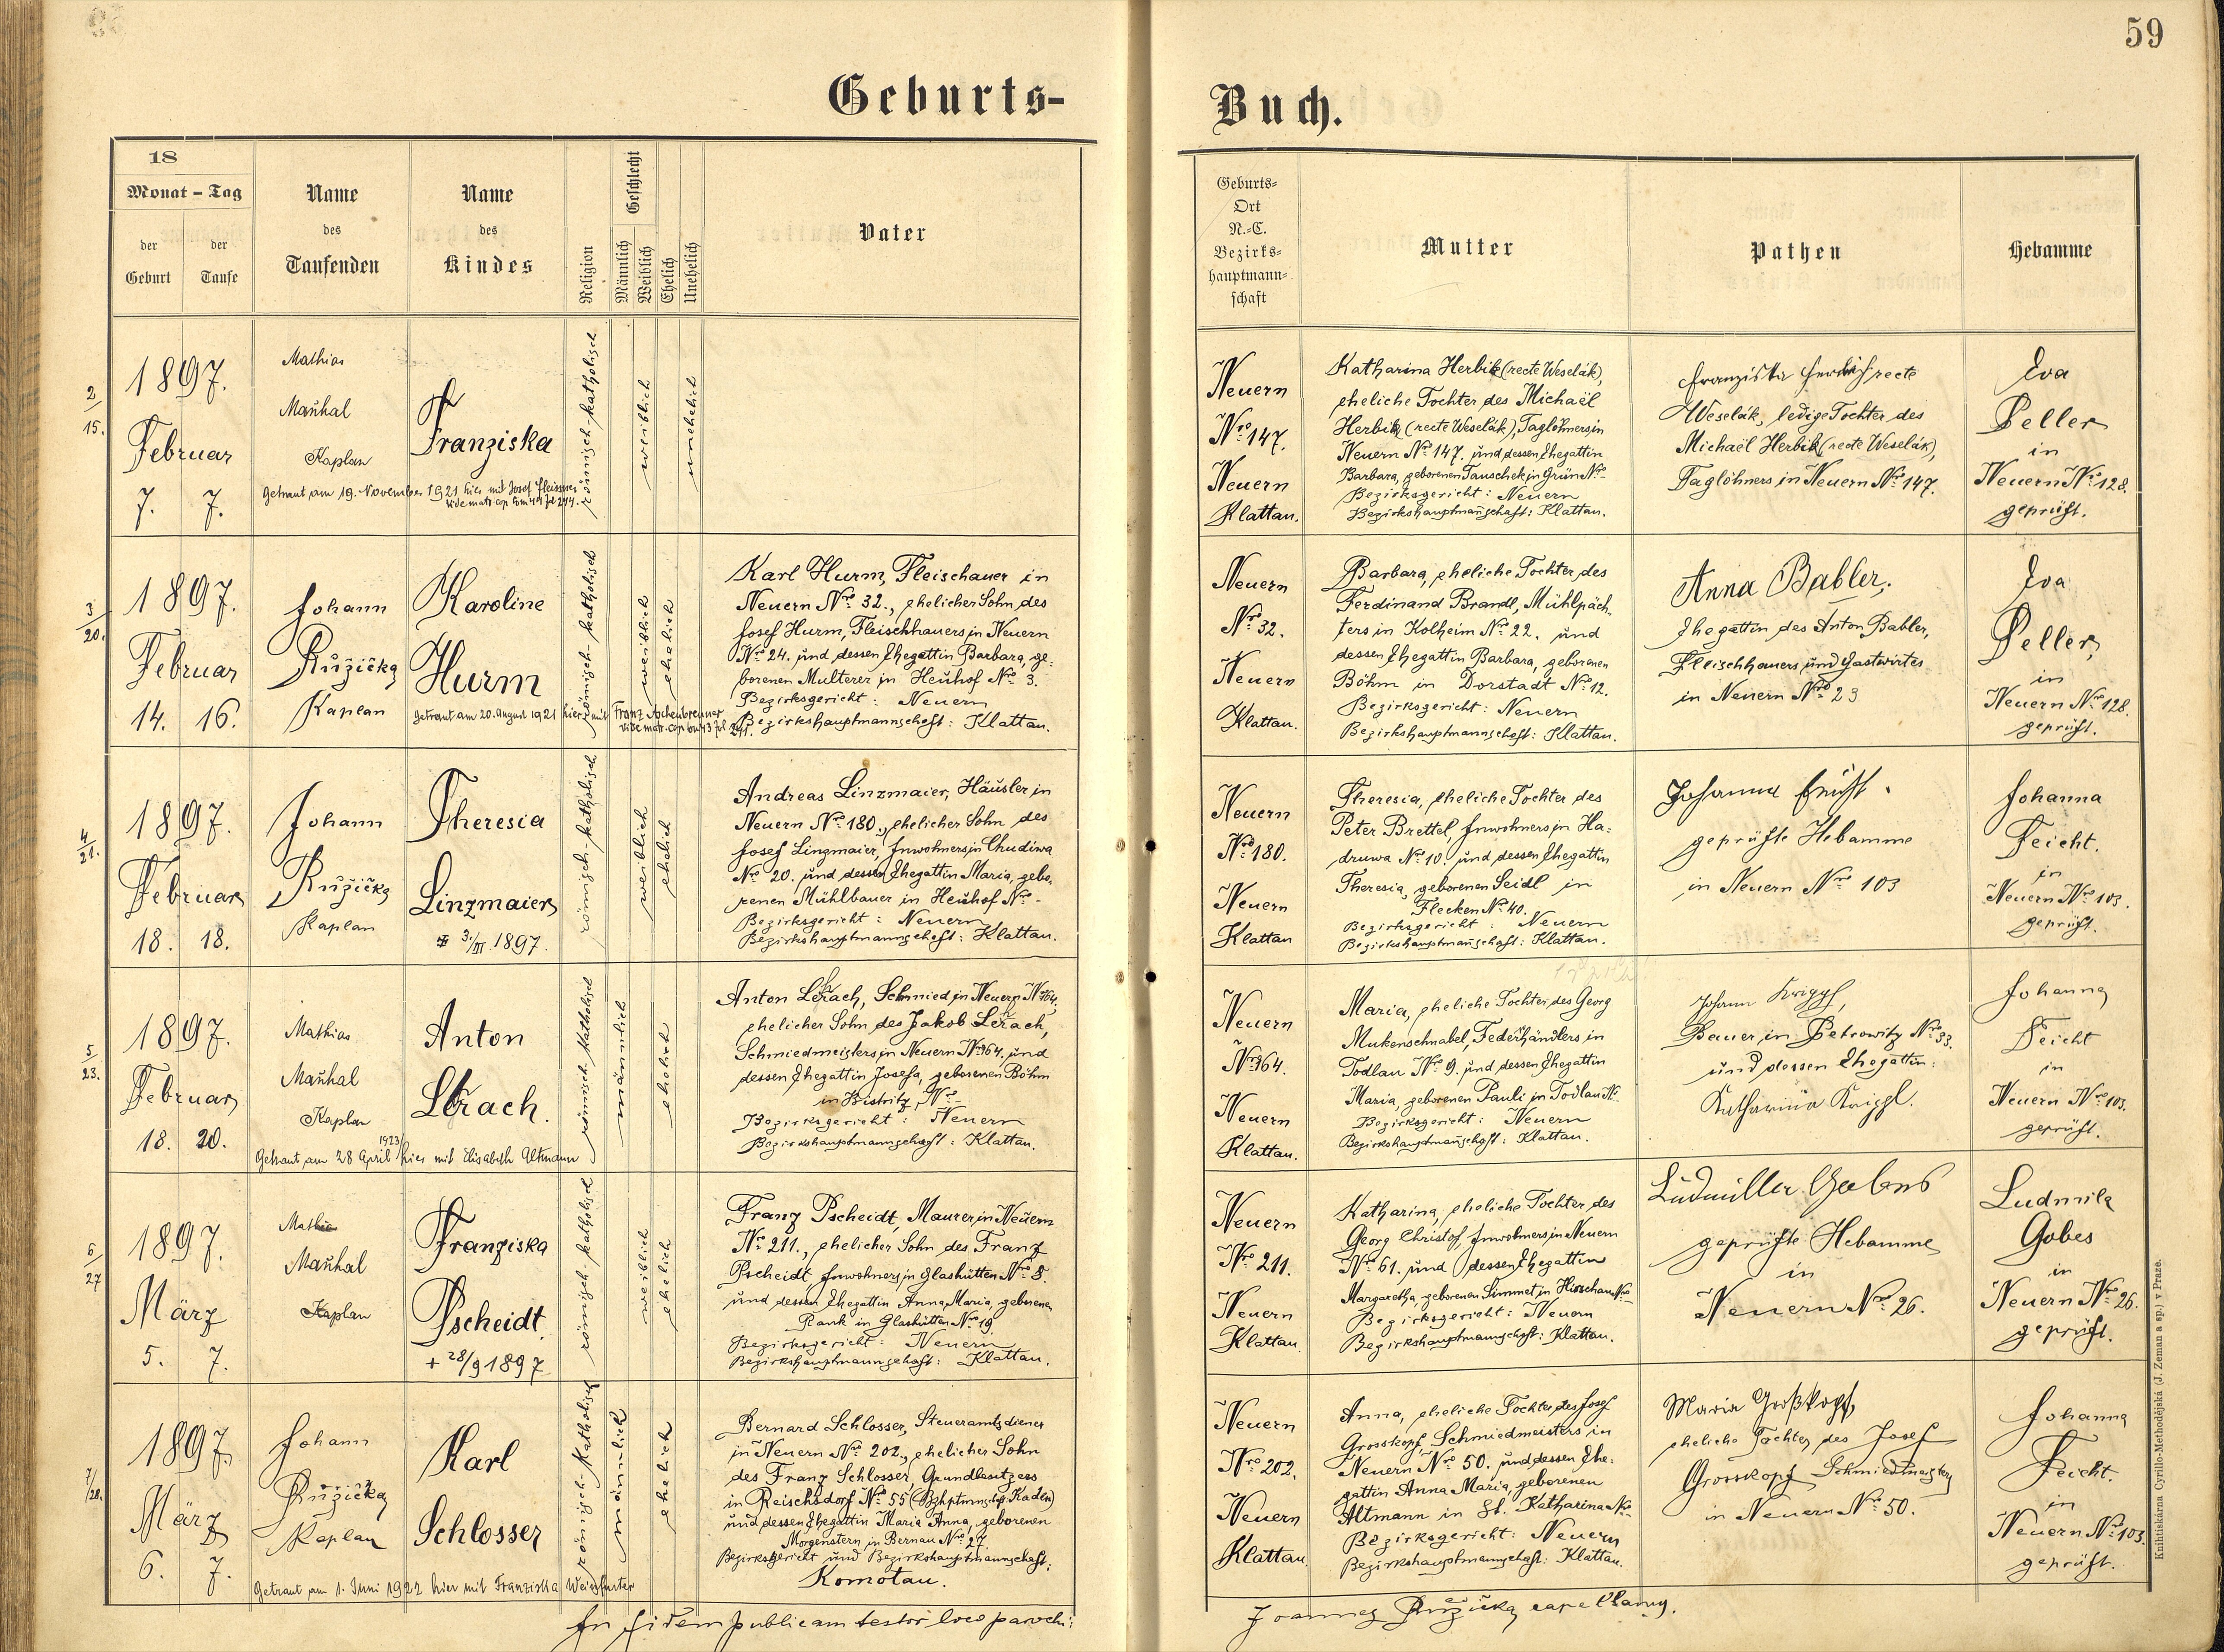 59
Geburts-
Buch.
18
Monat - Tag
der Geburt
der Taufe
Name des Taufenden
Name des Kindes
Religion
Geschlecht
Männlich
Weiblich
Ehelich
Unehelich
Vater
Geburts-
Ort
N.-C.
Bezirks-
hauptmann-
schaft
Mutter
Pathen
Hebamme
2/15.
1897.
Februar
7. 7.
Mathias
Mauhal
Kaplan
Franziska
Getraut am 19. November 1921 hier mit Josef
römisch-katholisch
weiblich
unehelich
Neuern
Nro 147.
Neuern
Klattau.
Katharina Herbik (recte Weselák),
eheliche Tochter des Michaël
Herbik (recte Weselák), Taglöhners in
Neuern Nro 147. und dessen Ehegattin
Barbara, geborenen Tauschek in Grün Nro -
Bezirksgericht: Neuern
Bezirkshauptmanschaft: Klattau.
Franziska recte
Weselák, ledige Tochter des
Michaël Herbik (recte Weselák),
Taglöhners in Neuern Nro 147.
Eva
Peller
in
Neuern Nro 128.
geprüft.
3/20.
1897.
Februar
14. 16.
Johann
Růžička
Kaplan
Karoline
Hurm
Getraut am 20. August 1921 hier mit Franz Aschenbrenner
römisch-katholisch
weiblich
ehelich
Karl Hurm, Fleischauer in
Neuern Nro 32., ehelicher Sohn des
Josef Hurm, Fleischhauers in Neuern
Nro 24. und dessen Ehegattin Barbara, ge-
borenen Multerer in Heuhof Nro 3.
Bezirksgericht: Neuern
Bezirkshauptmannschaft: Klattau.
Neuern
Nro 32.
Neuern
Klattau.
Barbara, eheliche Tochter des
Ferdinand Brandl, Mühlpäch-
ters in Kolheim Nro 22. und
dessen Ehegattin Barbara, geborenen
Böhm in Dorstadt Nro 12.
Bezirksgericht: Neuern
Bezirkshauptmannschaft: Klattau.
Anna Babler,
Ehegattin des Anton Babler,
Fleischhauers und Gastwirtes
in Neuern Nro 23
Eva
Peller,
in
Neuern Nro 128.
geprüft.
4/21.
1897.
Februar
18. 18.
Johann
Růžička
Kaplan
Theresia
Linzmaier
3./III. 1897.
römisch-katholisch
weiblich
ehelich
Andreas Linzmaier, Häusler in
Neuern Nro 180., ehelicher Sohn des
Josef Linzmaier, Inwohners in Chudiwa
Nro 20. und dessen Ehegattin Maria, gebo-
renen Mühlbauer in Heuhof Nro -
Bezirksgericht: Neuern
Bezirkshauptmannschaft: Klattau.
Neuern
Nro 180.
Neuern
Klattau
Theresia, eheliche Tochter des
Peter Brettel, Inwohners in Ha-
druwa Nro 10. und dessen Ehegattin
Theresia, geborenen Seidl in
Flecken Nro 40.
Bezirksgericht: Neuern
Bezirkshauptmanschaft: Klattau.
Johanna Feicht.
geprüfte Hebamme
in Neuern Nro 103
Johanna
Feicht.
in
Neuern Nro 103.
geprüft.
5/23.
1897.
Februar
18. 20.
Mathias
Mauhal
Kaplan
Anton
Lerach.
Getraut am 28 April 1923 hier mit Elisabeth Altmann
römisch-katholisch
männlich
ehelich
Anton Lerach, Schmied in Neuern Nro 164.
ehelicher Sohn des Jakob Lerach,
Schmiedmeisters in Neuern Nro 164. und
dessen Ehegattin Josefa, geborenen Böhm
in Bistritz, Nro -
Bezirksgericht: Neuern
Bezirkshauptmannschaft: Klattau.
Neuern
Nro 164.
Neuern
Klattau.
Maria, eheliche Tochter des Georg
Mukenschnabel, Federhändlers in
Todlau Nro 9. und dessen Ehegattin
Maria, geborenen Pauli in Todlau Nr.
Bezirksgericht: Neuern
Bezirkshauptmanschaft: Klattau.
Johann Krippl,
Bauer in Petrowitz Nro 33.
und dessen Ehegattin:
Katharina Krippl.
Johanna
Feicht
in
Neuern Nro 103.
geprüft.
6/27
1897.
März
5. 7.
Mathias
Mauhal
Kaplan
Franziska
Pscheidt.
+ 28/9 1897
römisch-katholisch
weiblich
ehelich
Franz Pscheidt, Maurer in Neuern
Nro 211., ehelicher Sohn des Franz
Pscheidt, Inwohners in Glashütten Nro 8.
und dessen Ehegattin Anna Maria, geborenen
Rank in Glashütten Nro 19.
Bezirksgericht: Neuern
Bezirkshauptmannschaft: Klattau.
Neuern
Nro 211.
Neuern
Klattau.
Katharina, eheliche Tochter des
Georg Christof, Inwohners in Neuern
Nro 61. und dessen Ehegattin
Margaretha, geborenen Simmet in Hirschau Nro -
Bezirksgericht: Neuern
Bezirkshauptmannschaft: Klattau.
Ludmilla Gabes
geprüfte Hebamme
in
Neuern Nro 26.
Ludmila
Gobes
in
Neuern Nro 26.
geprüft.
7/28.
1897.
März
6. 7.
Johann
Růžička
Kaplan
Karl
Schlosser
Getraut am 1. Juni 1922 hier mit Franziska Weinfurter
römisch-katholisch
männlich
ehelich
Bernard Schlosser, Steueramtsdiener
in Neuern Nro 202., ehelicher Sohn
des Franz Schlosser, Grundbesitzers
in Reischsdorf Nro 55 (Bzhptmnschft. Kaden)
und dessen Ehegattin Maria Anna, geborenen
Morgenstern in Bernau Nro 27.
Bezirksgericht und Bezirkshauptmannschaft:
Komotau.
Neuern
Nro 202.
Neuern
Klattau
Anna, eheliche Tochter des Josef
Grosskopf, Schmiedmeisters in
Neuern Nro 50. und dessen Ehe-
gattin Anna Maria, geborenen
Altmann in St. Katharina Nro -
Bezirksgericht: Neuern
Bezirkshauptmannschaft: Klattau.
Maria Großkopf,
eheliche Tochter des Josef
Grosskopf Schmiedmeister
in Neuern Nro 50.
Johanna
Feicht.
in
Neuern Nro 103.
geprüft.
In fidem publicam testor loco parochi:
Joannes Růžička, capellanus.
Knihtiskárna Cyrillo-Methodějská (J. Zeman a sp.) v Praze.